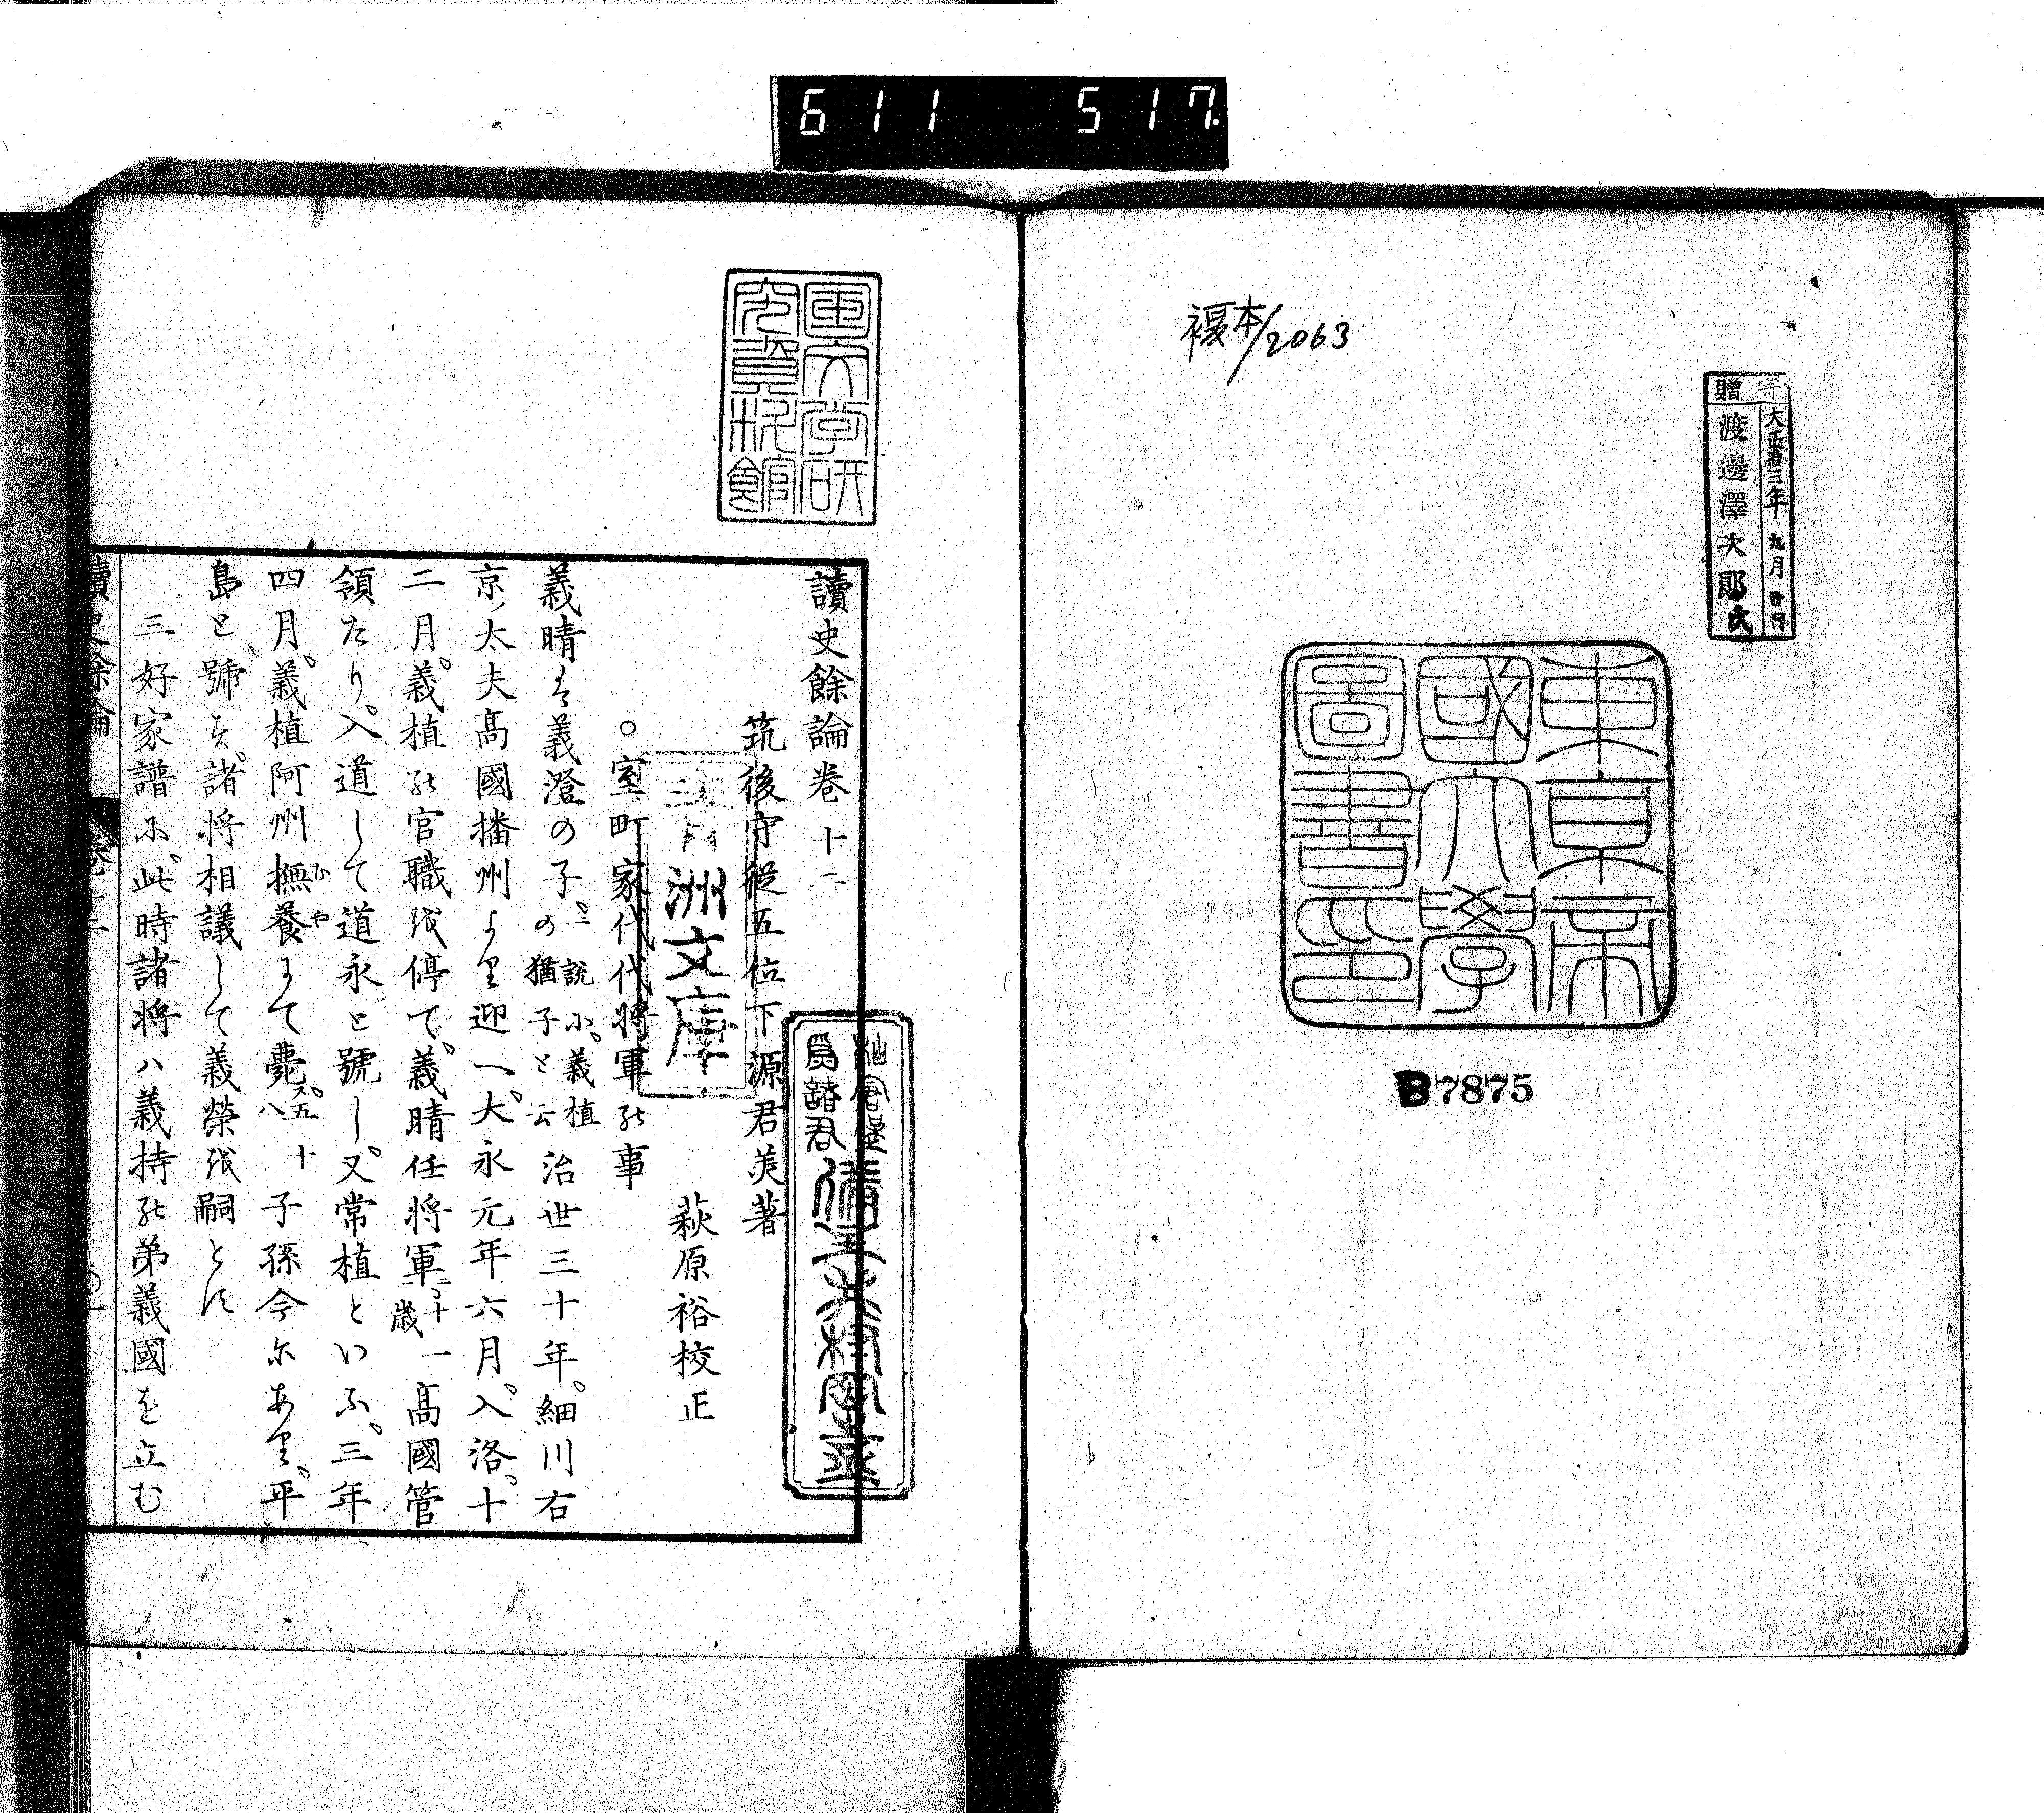 611 517
複本/2063
寄贈
大正拾三年九月廿日
渡邊澤次郎氏
東京帝
國大學
圖書印
B7875
国文学研
究資料館
讀史餘論卷十二
筑後守從五位下源君美著
萩原裕校正
洲文庫
○室町家代代將軍の事
義晴は義澄の子、一説に、義植の猶子と云治世三十年。細川右
京ノ太夫髙國播州より迎へ、大永元年六月、入洛、十
二月。義植の官職を停て、義晴任将軍二十一歳髙國管
領たり、入道して道永と號し、又常植といふ、三年
四月。義植阿州撫養にて薨ス、五十八子孫今尓あり、平
島と號す、諸将相議して義榮を嗣とす
三好家譜に、此時諸将ハ義持の弟義國を立む